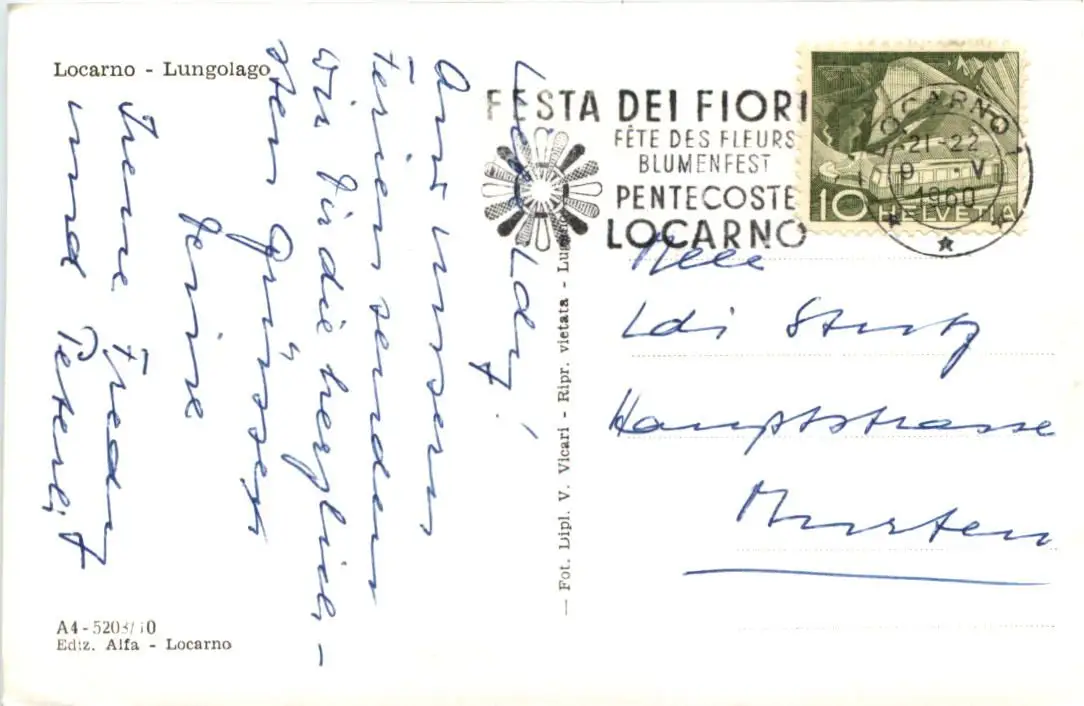 Locarno - Lungolago
Liebe Ldy!
Aus unsern
Ferien senden
wir Dir die herzlich-
sten Grüsse
Irene Fredy
und Peterli
A4-5203/10
Ediz. Alfa - Locarno
— Fot. Dipl. V. Vicari - Ripr. vietata - Lugano
FESTA DEI FIORI
FÊTE DES FLEURS
BLUMENFEST
PENTECOSTE
LOCARNO
LOCARNO 1
21-22
9 . V
1960
10 HELVETIA
Ldi Sturtz
Hauptstrasse
Murten